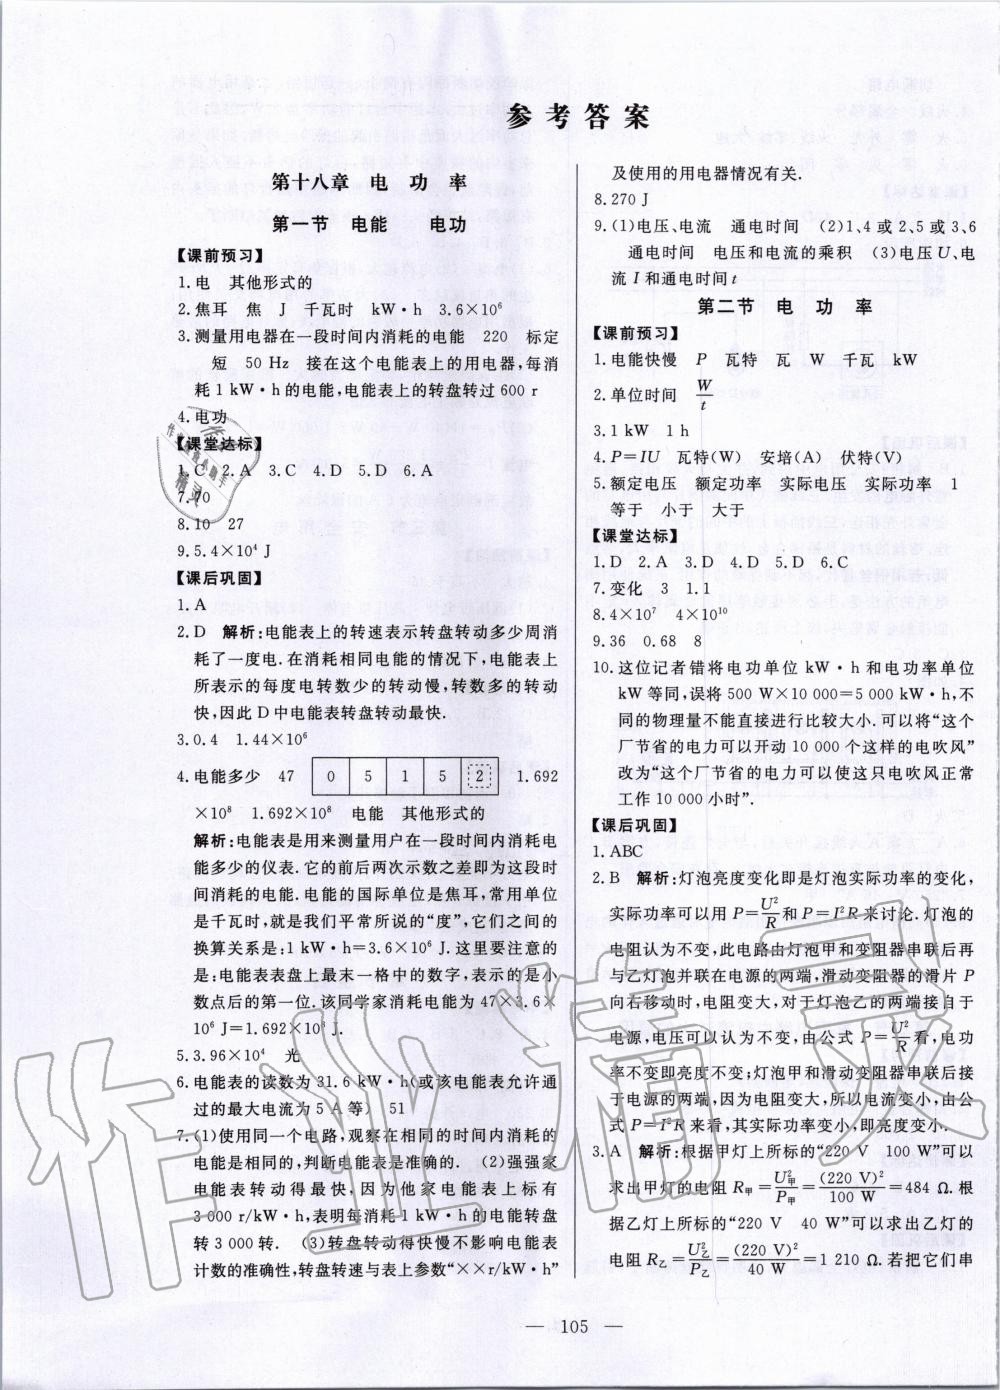 参考答案
第十八章 电 功 率
第一节 电能 电功
【课前预习】
1.电 其他形式的
2.焦耳 焦 J 千瓦时 kW·h 3.6×10⁶
3.测量用电器在一段时间内消耗的电能 220 标定
短 50 Hz 接在这个电能表上的用电器,每消
耗1 kW·h的电能,电能表上的转盘转过600 r
4.电功
【课堂达标】
1.C 2.A 3.C 4.D 5.D 6.A
7.70
8.10 27
9.5.4×10⁴ J
【课后巩固】
1.A
2.D 解析:电能表上的转速表示转盘转动多少周消
耗了一度电.在消耗相同电能的情况下,电能表上
所表示的每度电转数少的转动慢,转数多的转动
快,因此D中电能表转盘转动最快.
3.0.4 1.44×10⁶
4.电能多少 47 0 5 1 5 2 1.692
×10⁸ 1.692×10⁸ 电能 其他形式的
解析:电能表是用来测量用户在一段时间内消耗电
能多少的仪表.它的前后两次示数之差即为这段时
间消耗的电能.电能的国际单位是焦耳,常用单位
是千瓦时,就是我们平常所说的“度”,它们之间的
换算关系是:1 kW·h=3.6×10⁶ J.这里要注意的
是:电能表表盘上最末一格中的数字,表示的是小
数点后的第一位.该同学家消耗电能为47×3.6×
10⁶ J=1.692×10⁸ J.
5.3.96×10⁴ 光
6.电能表的读数为31.6 kW·h(或该电能表允许通
过的最大电流为5 A等) 51
7.(1)使用同一个电路,观察在相同的时间内消耗的
电能是相同的,判断电能表是准确的. (2)强强家
电能表转动得最快,因为他家电能表上标有
3 000 r/kW·h,表明每消耗1 kW·h的电能转盘
转3 000转. (3)转盘转动得快慢不影响电能表
计数的准确性,转盘转速与表上参数“××r/kW·h”
及使用的用电器情况有关.
8.270 J
9.(1)电压、电流 通电时间 (2)1、4或2、5或3、6
通电时间 电压和电流的乘积 (3)电压U、电
流I和通电时间t
第二节 电 功 率
【课前预习】
1.电能快慢 P 瓦特 瓦 W 千瓦 kW
2.单位时间 W/t
3.1 kW 1 h
4.P=IU 瓦特(W) 安培(A) 伏特(V)
5.额定电压 额定功率 实际电压 实际功率 1
等于 小于 大于
【课堂达标】
1.D 2.A 3.D 4.D 5.D 6.C
7.变化 3 1.1
8.4×10⁷ 4×10¹⁰
9.36 0.68 8
10.这位记者错将电功单位kW·h和电功率单位
kW等同,误将500 W×10 000=5 000 kW·h,不
同的物理量不能直接进行比较大小.可以将“这个
厂节省的电力可以开动10 000个这样的电吹风”
改为“这个厂节省的电力可以使这只电吹风正常
工作10 000小时”.
【课后巩固】
1.ABC
2.B 解析:灯泡亮度变化即是灯泡实际功率的变化,
实际功率可以用P=U²/R和P=I²R来讨论.灯泡的
电阻认为不变,此电路由灯泡甲和变阻器串联后再
与乙灯泡并联在电源的两端,滑动变阻器的滑片P
向右移动时,电阻变大,对于灯泡乙的两端接自于
电源,电压可以认为不变,由公式P=U²/R看,电功
率不变即亮度不变;灯泡甲和滑动变阻器串联后接
于电源的两端,因为电阻变大,所以电流变小,由公
式P=I²R来看,其实际功率变小,即亮度变小.
3.A 解析:根据甲灯上所标的“220 V 100 W”可以
求出甲灯的电阻R甲=U²甲/P甲=(220 V)²/100 W=484 Ω.根
据乙灯上所标的“220 V 40 W”可以求出乙灯的
电阻R乙=U²乙/P乙=(220 V)²/40 W=1 210 Ω.若把它们串
— 105 —
作业精灵